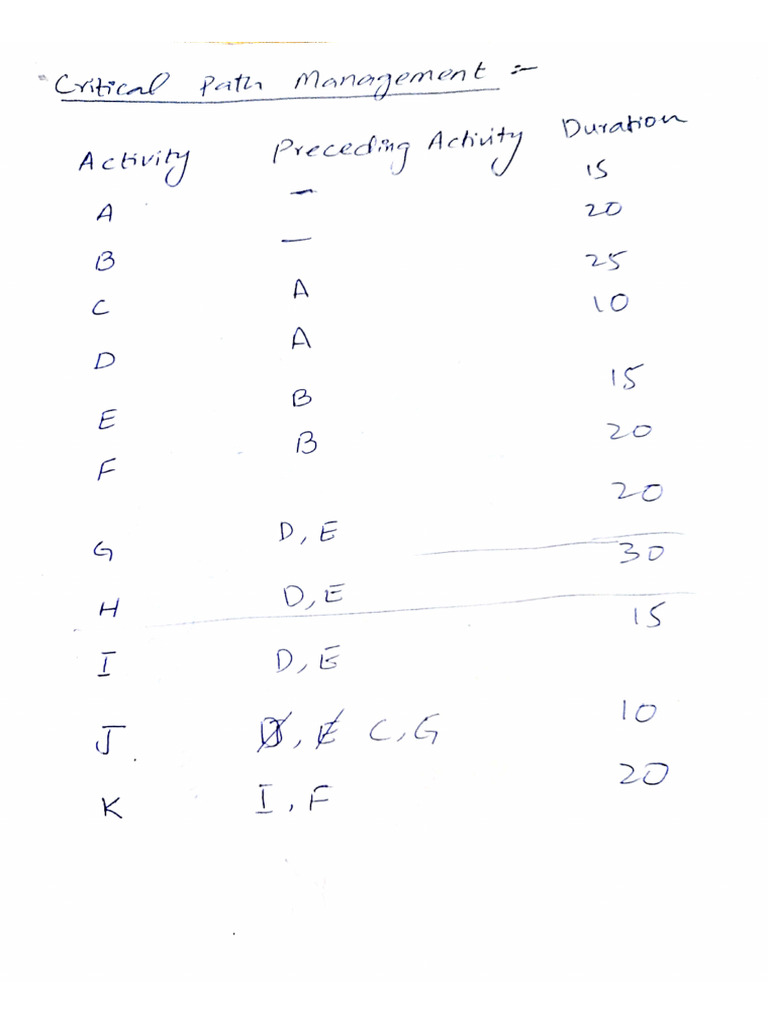 Critical Path Management :-
Activity Preceding Activity Duration
A — 15
B — 20
C A 25
D A 10
E B 15
F B 20
G D, E 20
H D, E 30
I D, E 15
J D, E C, G 10
K I, F 20